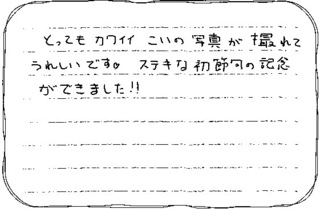 とっても カワイイ こいの 写真が 撮れて
うれしいです。 ステキな 初節句の記念
ができました!!